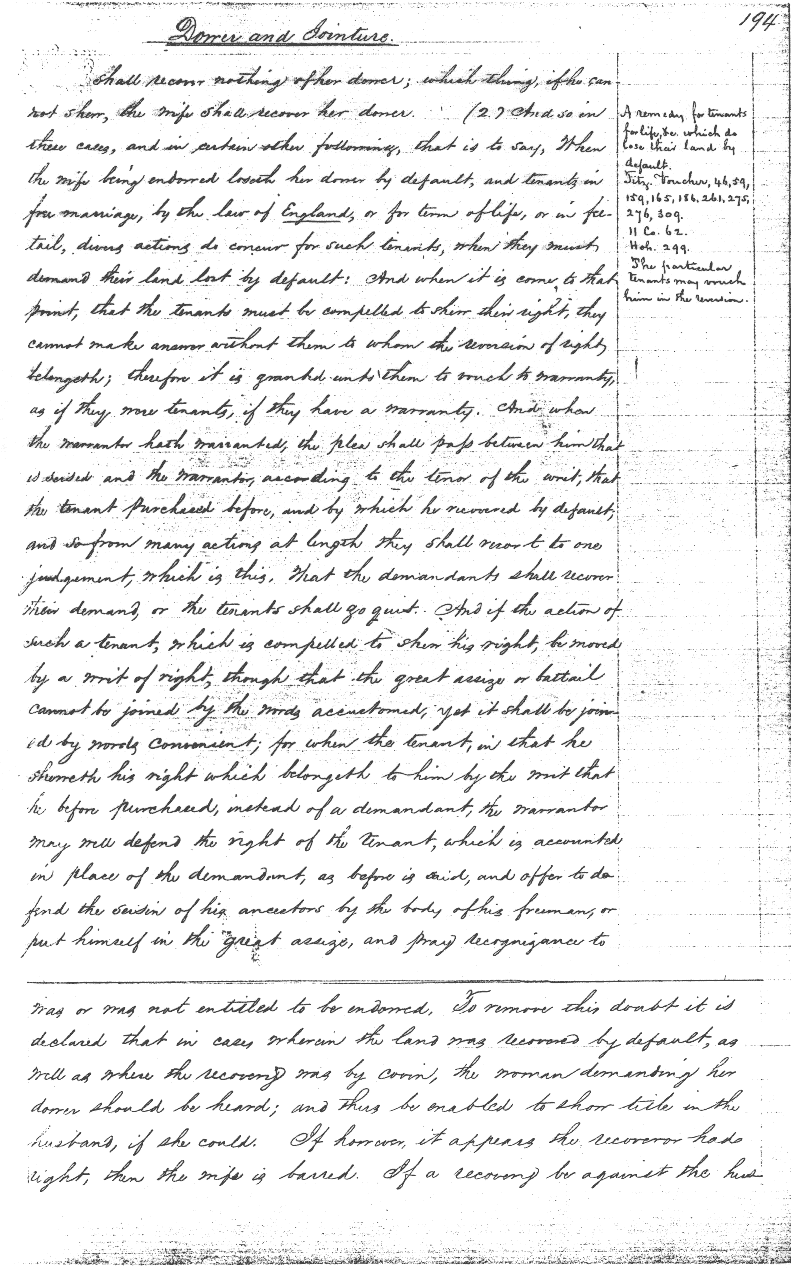 194
Dower and Jointure.
shall recover nothing of her dower; which thing, if he can-
not shew, the wife shall recover her dower. (2.) And so in
these cases, and in certain other following, that is to say, When
the wife being endowed loseth her dower by default, and tenants in
free marriage, by the law of England, or for term of life, or in fee-
tail, divers actions do concur for such tenants, when they must
demand their land lost by default: And when it is come to that
point, that the tenants must be compelled to shew their right, they
cannot make answer without them to whom the reversion of right
belongeth; therefore it is granted unto them to vouch to warranty,
as if they were tenants, if they have a warranty. And when
the warrantor hath warranted, the plea shall pass between him that
is seised and the warrantor, according to the tenor of the writ, that
the tenant purchased before, and by which he recovered by default,
and so from many actions at length they shall resort to one
judgement, which is this, That the demandants shall recover
their demand, or the tenants shall go quit. And if the action of
such a tenant, which is compelled to shew his right, be moved
by a writ of right, though that the great assize or battail
cannot be joined by the words accustomed, yet it shall be join-
ed by words convenient; for when the tenant, in that he
sheweth his right which belongeth to him by the writ that
he before purchased, instead of a demandant, the warrantor
may well defend the right of the tenant, which is accounted
in place of the demandant, as before is said, and offer to de-
fend the seisin of his ancestors by the body of his freeman, or
put himself in the great assize, and pray recognizance to
A remedy for tenants
for life, &c. which do
lose their land by
default.
Fitz. Voucher, 46, 59,
159, 165, 186, 261, 275,
276, 309.
11 Co. 62.
Hob. 299.
The particular
tenants may vouch
him in the reversion.
was or was not entitled to be endowed. To remove this doubt it is
declared that in cases wherein the land was recovered by default, as
well as where the recovery was by covin, the woman demanding her
dower should be heard; and thus be enabled to show title in the
husband, if she could. If however, it appears the recoveror had
right, then the wife is barred. If a recovery be against the hus-